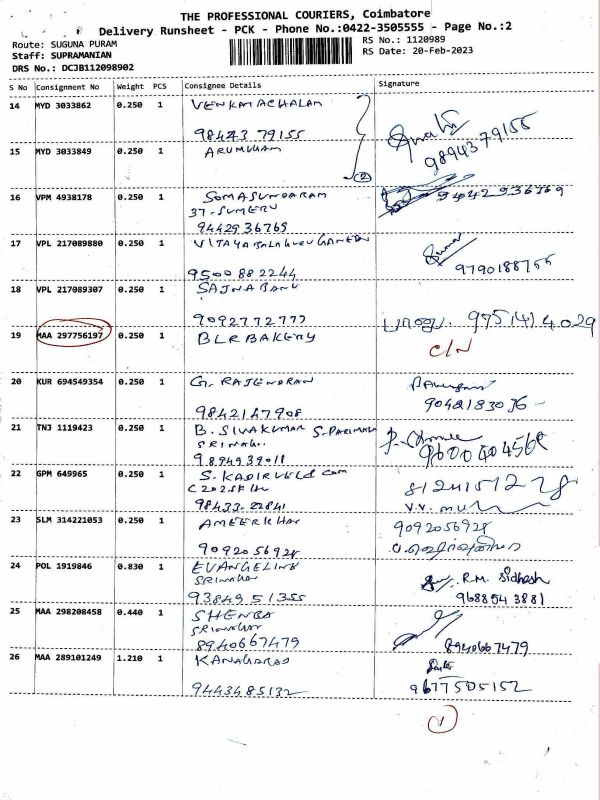 THE PROFESSIONAL COURIERS, Coimbatore
Delivery Runsheet - PCK - Phone No.:0422-3505555 - Page No.:2
Route: SUGUNA PURAM
RS No.: 1120989
Staff: SUPRAMANIAN
RS Date: 20-Feb-2023
DRS No.: DCJB112098902
S No Consignment No Weight PCS Consignee Details Signature
14 MYD 3033862 0.250 1 VENKATACHALAM
98443 79155
9894379155
15 MYD 3033849 0.250 1 ARUMUGAM
2
16 VPM 4938178 0.250 1 SOMASUNDARAM 9442936769
37. SUMERU
9442936769
17 VPL 217089880 0.250 1
9500882244 9790188755
18 VPL 217089307 0.250 1 SAJNA BANU
9092772777 பானு. 975141 4029
19 MAA 297756197 0.250 1 BLR BAKERY C/N
20 KUR 694549354 0.250 1 G. RAJENDRAN
9842147908 9042183036
21 TNJ 1119423 0.250 1 B. SIVAKUMAR
SRINAGAR
9894939011 9600404560
22 GPM 649965 0.250 1 S. KADIRVELU
98433-22841
23 SLM 314221053 0.250 1 AMEERKHAN 9092056928
9092056928
24 POL 1919846 0.830 1 EVANGELINE R.M. Sidhesh
SRINAGAR
9384951355 9688543881
25 MAA 298208458 0.440 1 SHENBA
SRINAGAR
8940667479 8940667479
26 MAA 289101249 1.210 1 KANAGARAJ
9443485132 9677505152
1